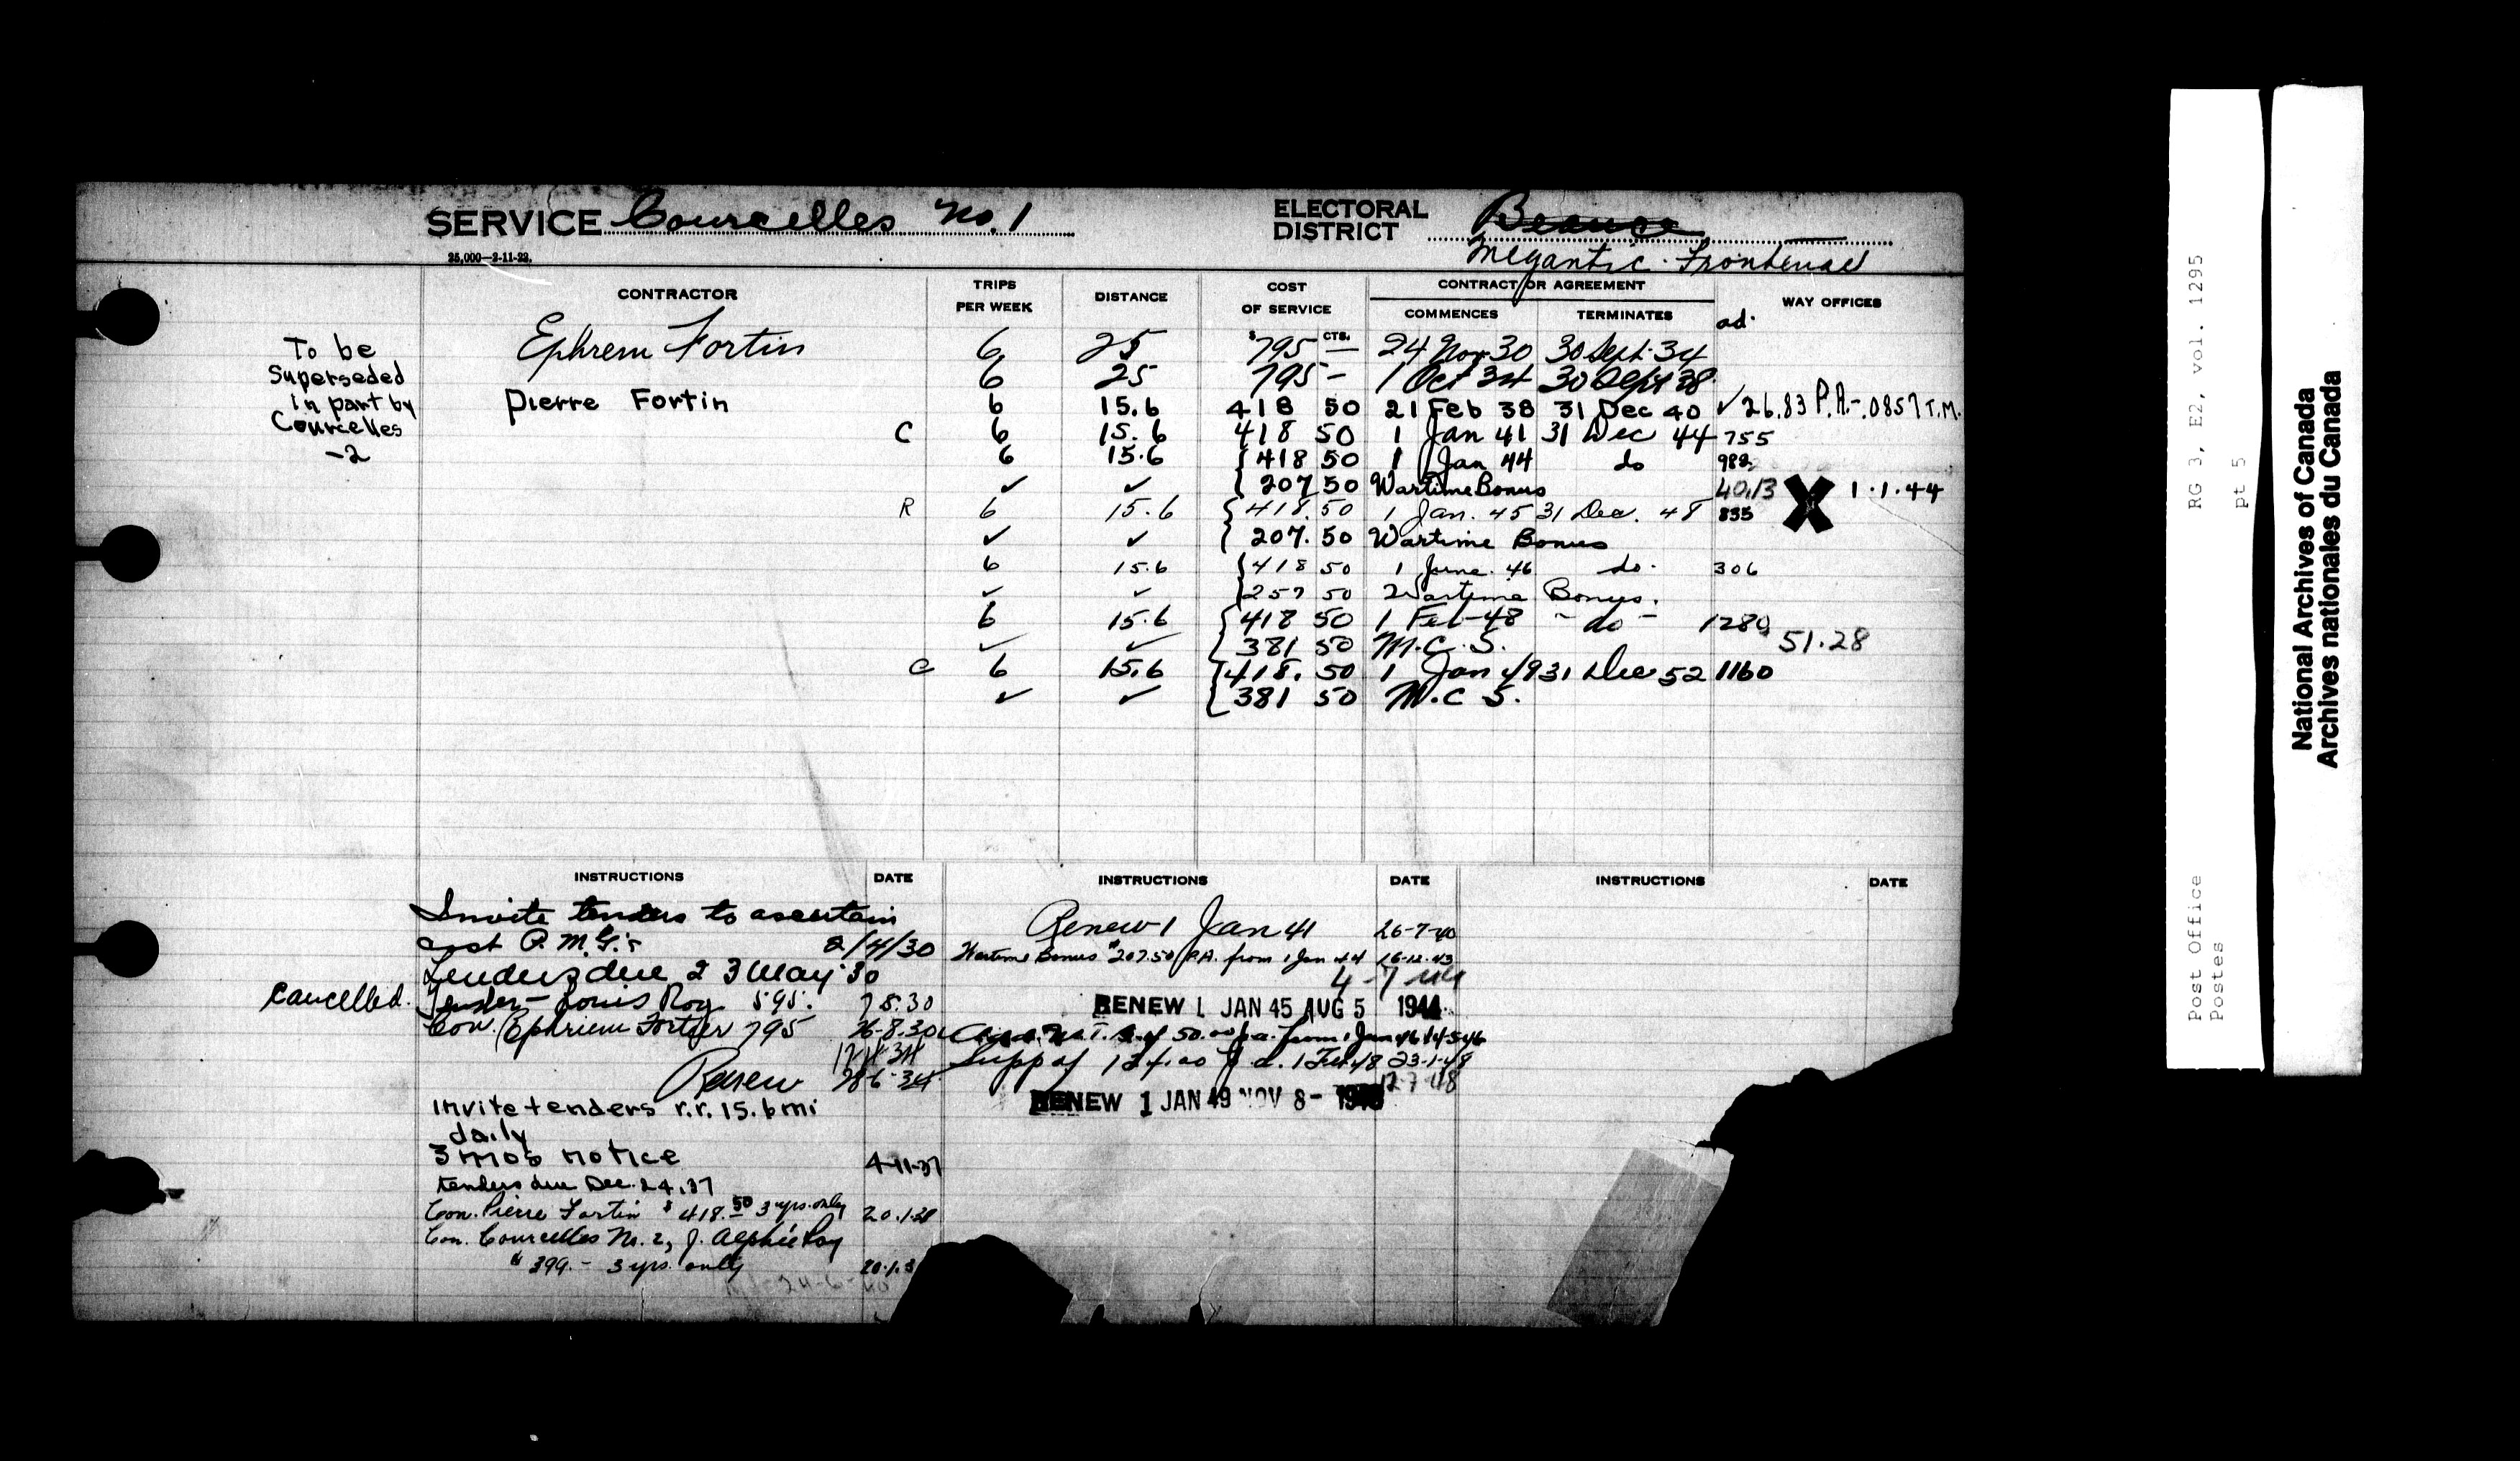 SERVICE Courcelles No. 1 ELECTORAL DISTRICT Beauce
Megantic-Frontenac
25,000—2-11-22.
CONTRACTOR TRIPS PER WEEK DISTANCE COST OF SERVICE CONTRACT OR AGREEMENT WAY OFFICES
COMMENCES TERMINATES ad.
$ CTS.
To be Superseded in part by Courcelles -2
Ephrem Fortin 6 25 795 — 24 Nov 30 30 Sept. 34
6 25 795 — 1 Oct 34 30 Sept 38
Pierre Fortin 6 15.6 418 50 21 Feb 38 31 Dec 40 ✓ 26.83 P.A.-.0857 T.M.
C 6 15.6 418 50 1 Jan 41 31 Dec 44 755
6 15.6 { 418 50 1 Jan 44 do 982
✓ ✓ { 207 50 Wartime Bonus 40.13 X 1.1.44
R 6 15.6 { 418.50 1 Jan. 45 31 Dec. 48 835
✓ ✓ { 207.50 Wartime Bonus
6 15.6 { 418 50 1 June. 46 do. 306
✓ ✓ { 257 50 Wartime Bonus.
6 15.6 { 418 50 1 Feb-48 - do - 1280
✓ ✓ { 381 50 M.C.S. 51.28
C 6 15.6 { 418.50 1 Jan 49 31 Dec 52 1160
✓ ✓ { 381 50 M.C S.
INSTRUCTIONS DATE
Invite tenders to ascertain
cost P.M.G.'s 2/4/30
Tenders due 23 May 30
Cancelled. Tender — Louis Roy 595. 7.8.30
Con. Ephriem Fortier 795 26-8.30
Renew 28-6-34
Invite tenders r.r. 15.6 mi
daily
3 mos notice 4-11-37
tenders due Dec. 24, 37
Con. Pierre Fortin $418.50 3 yrs. only 20.1.38
Con. Courcelles No. 2, J. Alphée Roy
$399.- 3 yrs. only 20.1.3
24-6-40
INSTRUCTIONS DATE
Renew 1 Jan 41 26-7-40
Wartime Bonus $207.50 P.A. from 1 Jan 44 16-12-43
4-7
RENEW 1 JAN 45 AUG 5 1944
50.00 p.a. from 1 Jun 46 14-5-46
Supp of 124.00 p.a. 1 Feb 48 23-1-48
12-7-48
RENEW 1 JAN 49 NOV 8- 1948
INSTRUCTIONS DATE
RG 3, E2, vol. 1295
pt 5
Post Office
Postes
National Archives of Canada
Archives nationales du Canada